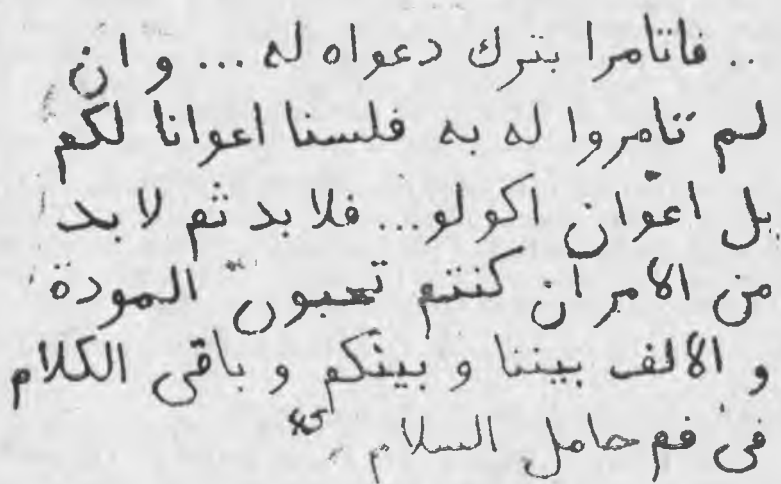 .. فاتامرا بترك دعواه له ... و ان
لم تامروا له به فلسنا اعوانا لكم
بل اعوان اكولو... فلا بد ثم لا بد
من الامر ان كنتم تحبون المودة
و الالف بيننا و بينكم و باقى الكلام
فى فم حامل السلام